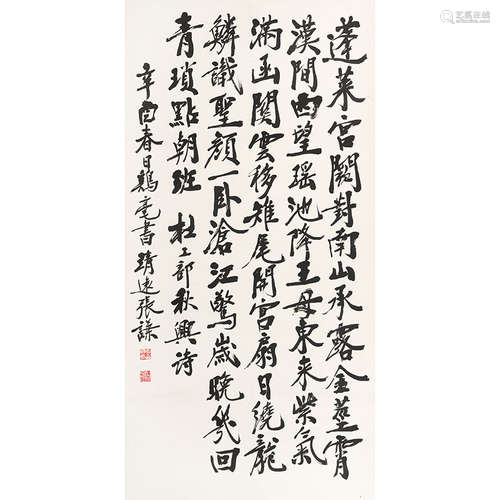 蓬莱宮闕對南山承露金莖霄
漢間西望瑶池降王母東来紫氣
滿函関雲移雉尾開宮扇日繞龍
鱗識聖顏一卧滄江驚歲晚幾回
青瑣點朝班 杜工部秋興詩
辛酉春日鷄毫書 靖遠張謙